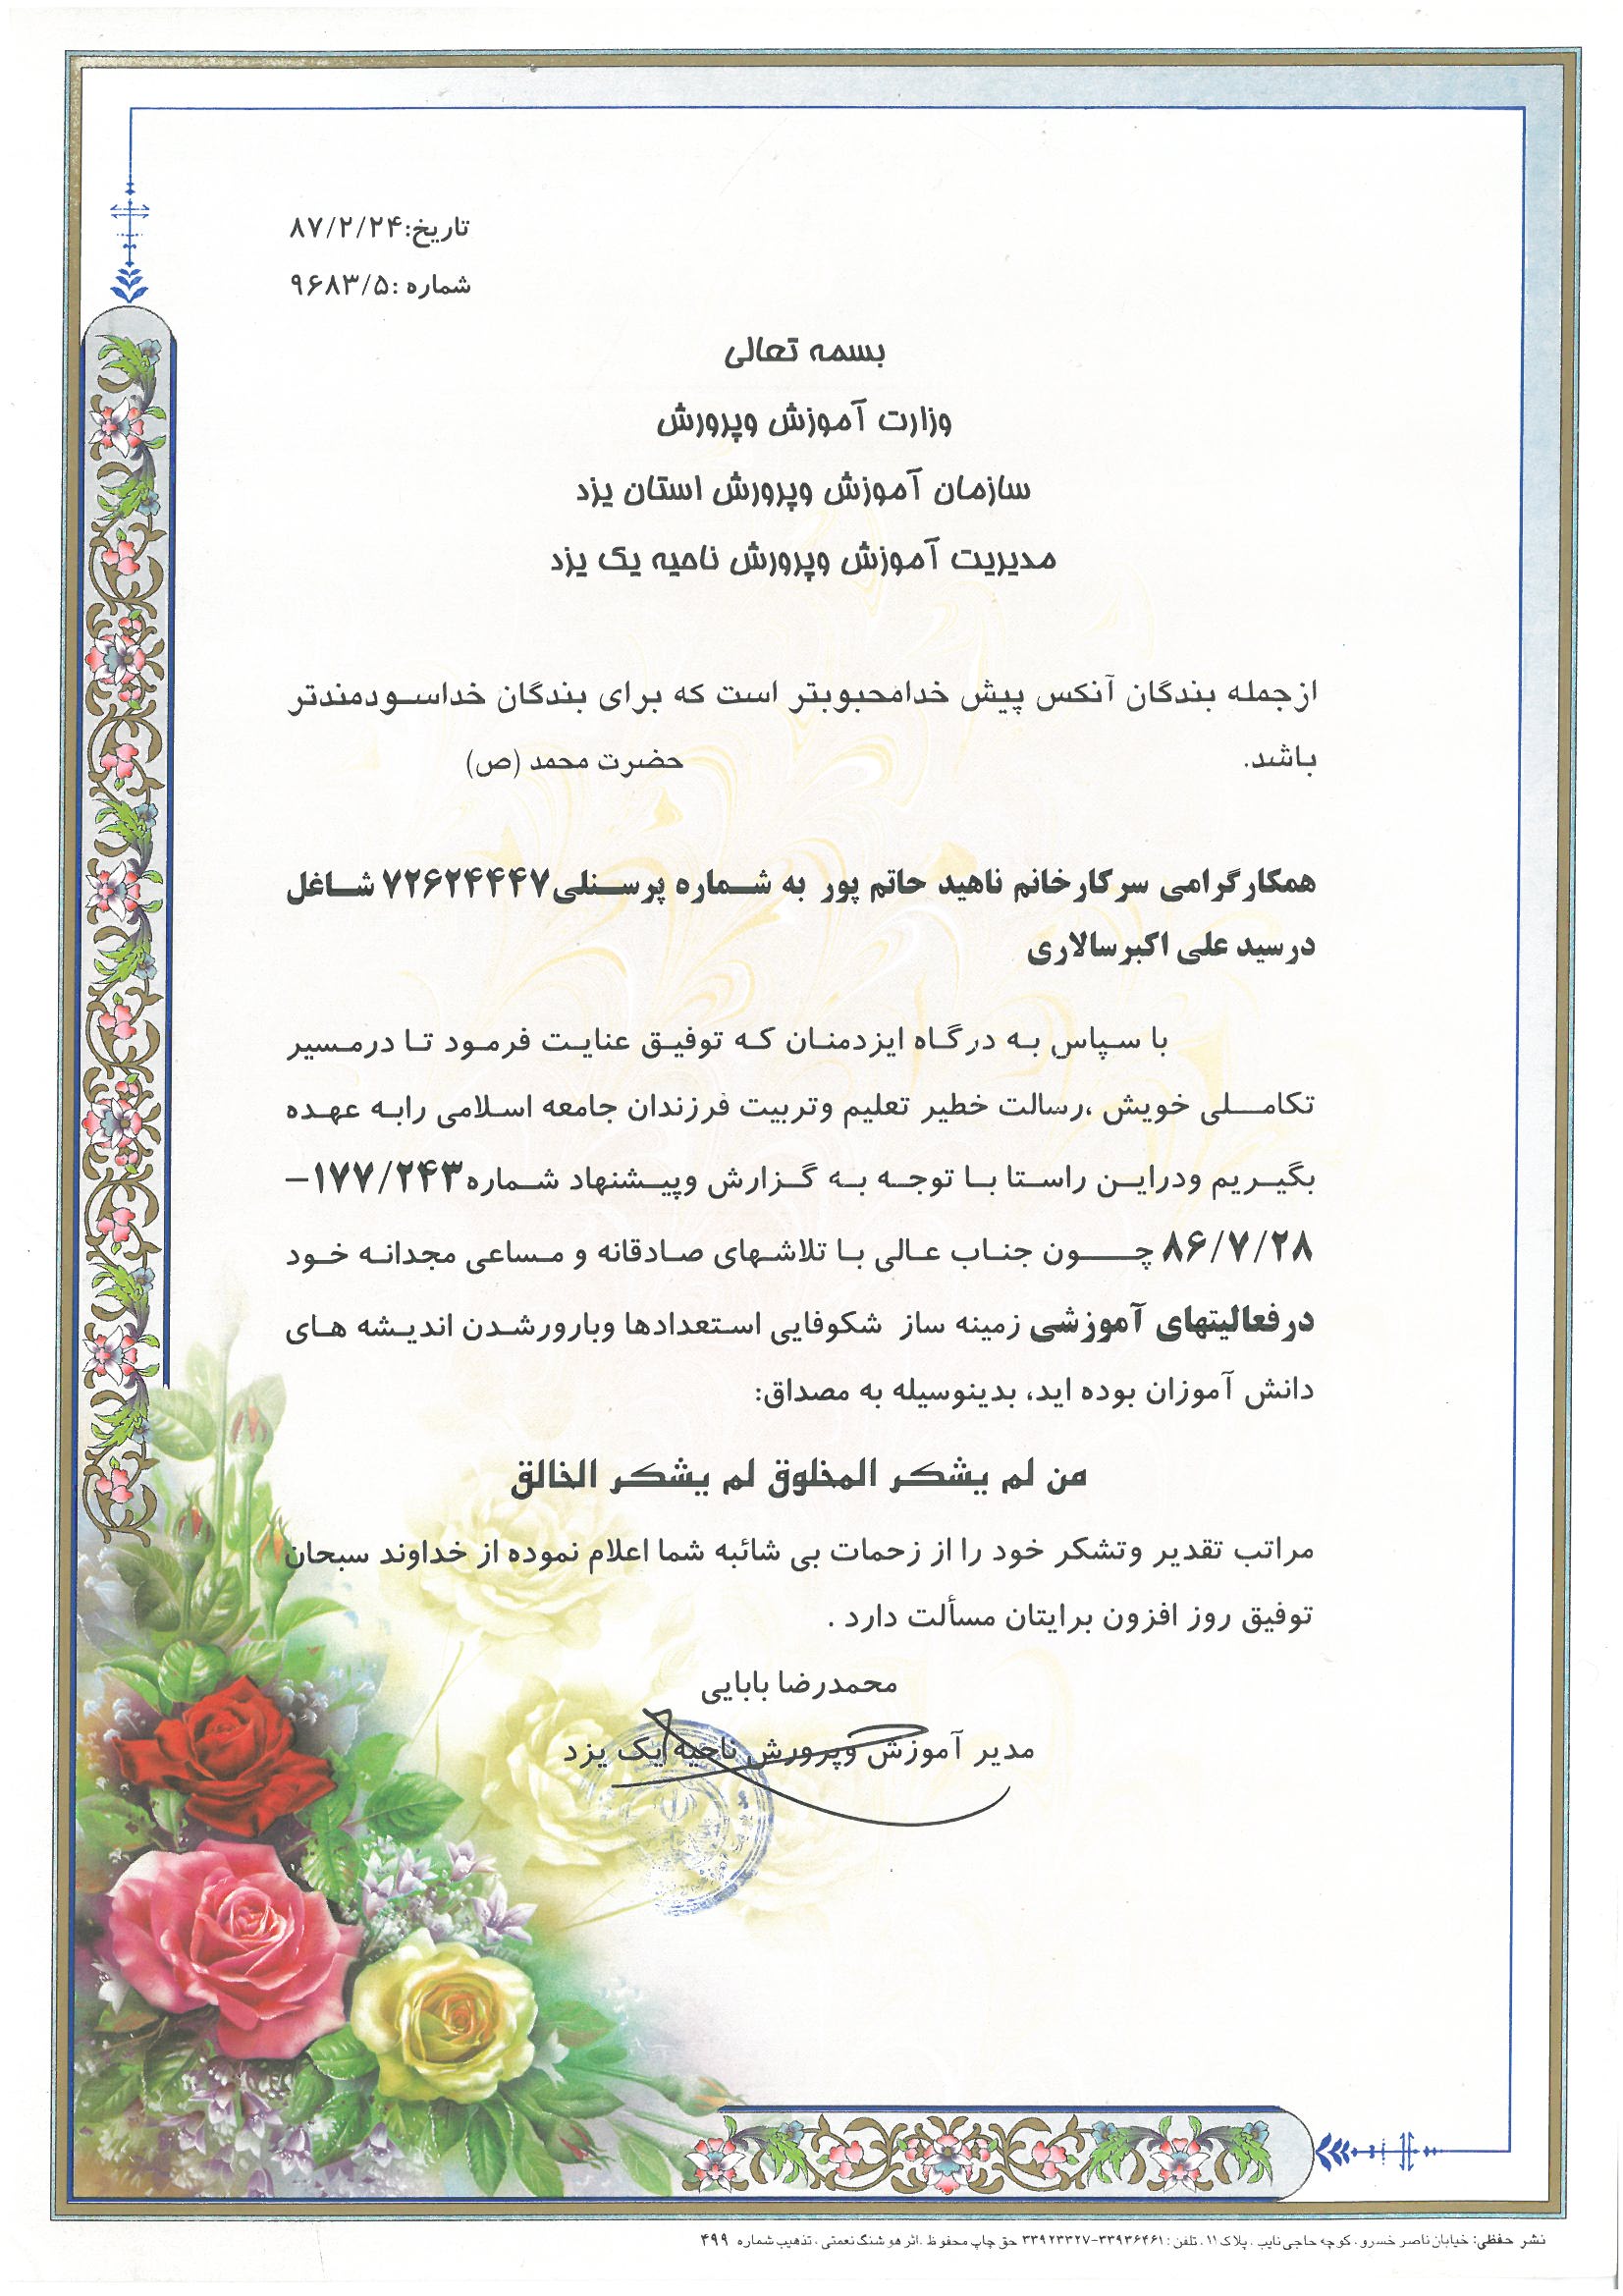 تاریخ:۸۷/۲/۲۴
شماره :۹۶۸۳/۵
بسمه تعالی
وزارت آموزش وپرورش
سازمان آموزش وپرورش استان یزد
مدیریت آموزش وپرورش ناحیه یک یزد
ازجمله بندگان آنکس پیش خدامحبوبتر است که برای بندگان خداسودمندتر
باشد. حضرت محمد (ص)
همکارگرامی سرکارخانم ناهید حاتم پور به شماره پرسنلی۷۲۶۲۴۴۴۷ شاغل
درسید علی اکبرسالاری
با سپاس به درگاه ایزدمنان که توفیق عنایت فرمود تا درمسیر
تکاملی خویش ،رسالت خطیر تعلیم وتربیت فرزندان جامعه اسلامی رابه عهده
بگیریم ودراین راستا با توجه به گزارش وپیشنهاد شماره۱۷۷/۲۴۳–
۸۶/۷/۲۸ چون جناب عالی با تلاشهای صادقانه و مساعی مجدانه خود
درفعالیتهای آموزشی زمینه ساز شکوفایی استعدادها وبارورشدن اندیشه های
دانش آموزان بوده اید، بدینوسیله به مصداق:
من لم یشکر المخلوق لم یشکر الخالق
مراتب تقدیر وتشکر خود را از زحمات بی شائبه شما اعلام نموده از خداوند سبحان
توفیق روز افزون برایتان مسألت دارد .
محمدرضا بابایی
مدیر آموزش وپرورش ناحیه یک یزد
نشر حفظی: خیابان ناصر خسرو، کوچه حاجی نایب ، پلاک ۱۱ ، تلفن : ۳۳۹۳۶۴۶۱-۳۳۹۲۳۳۲۷ حق چاپ محفوظ .اثر هوشنگ نعمتی ، تذهیب شماره ۴۹۹